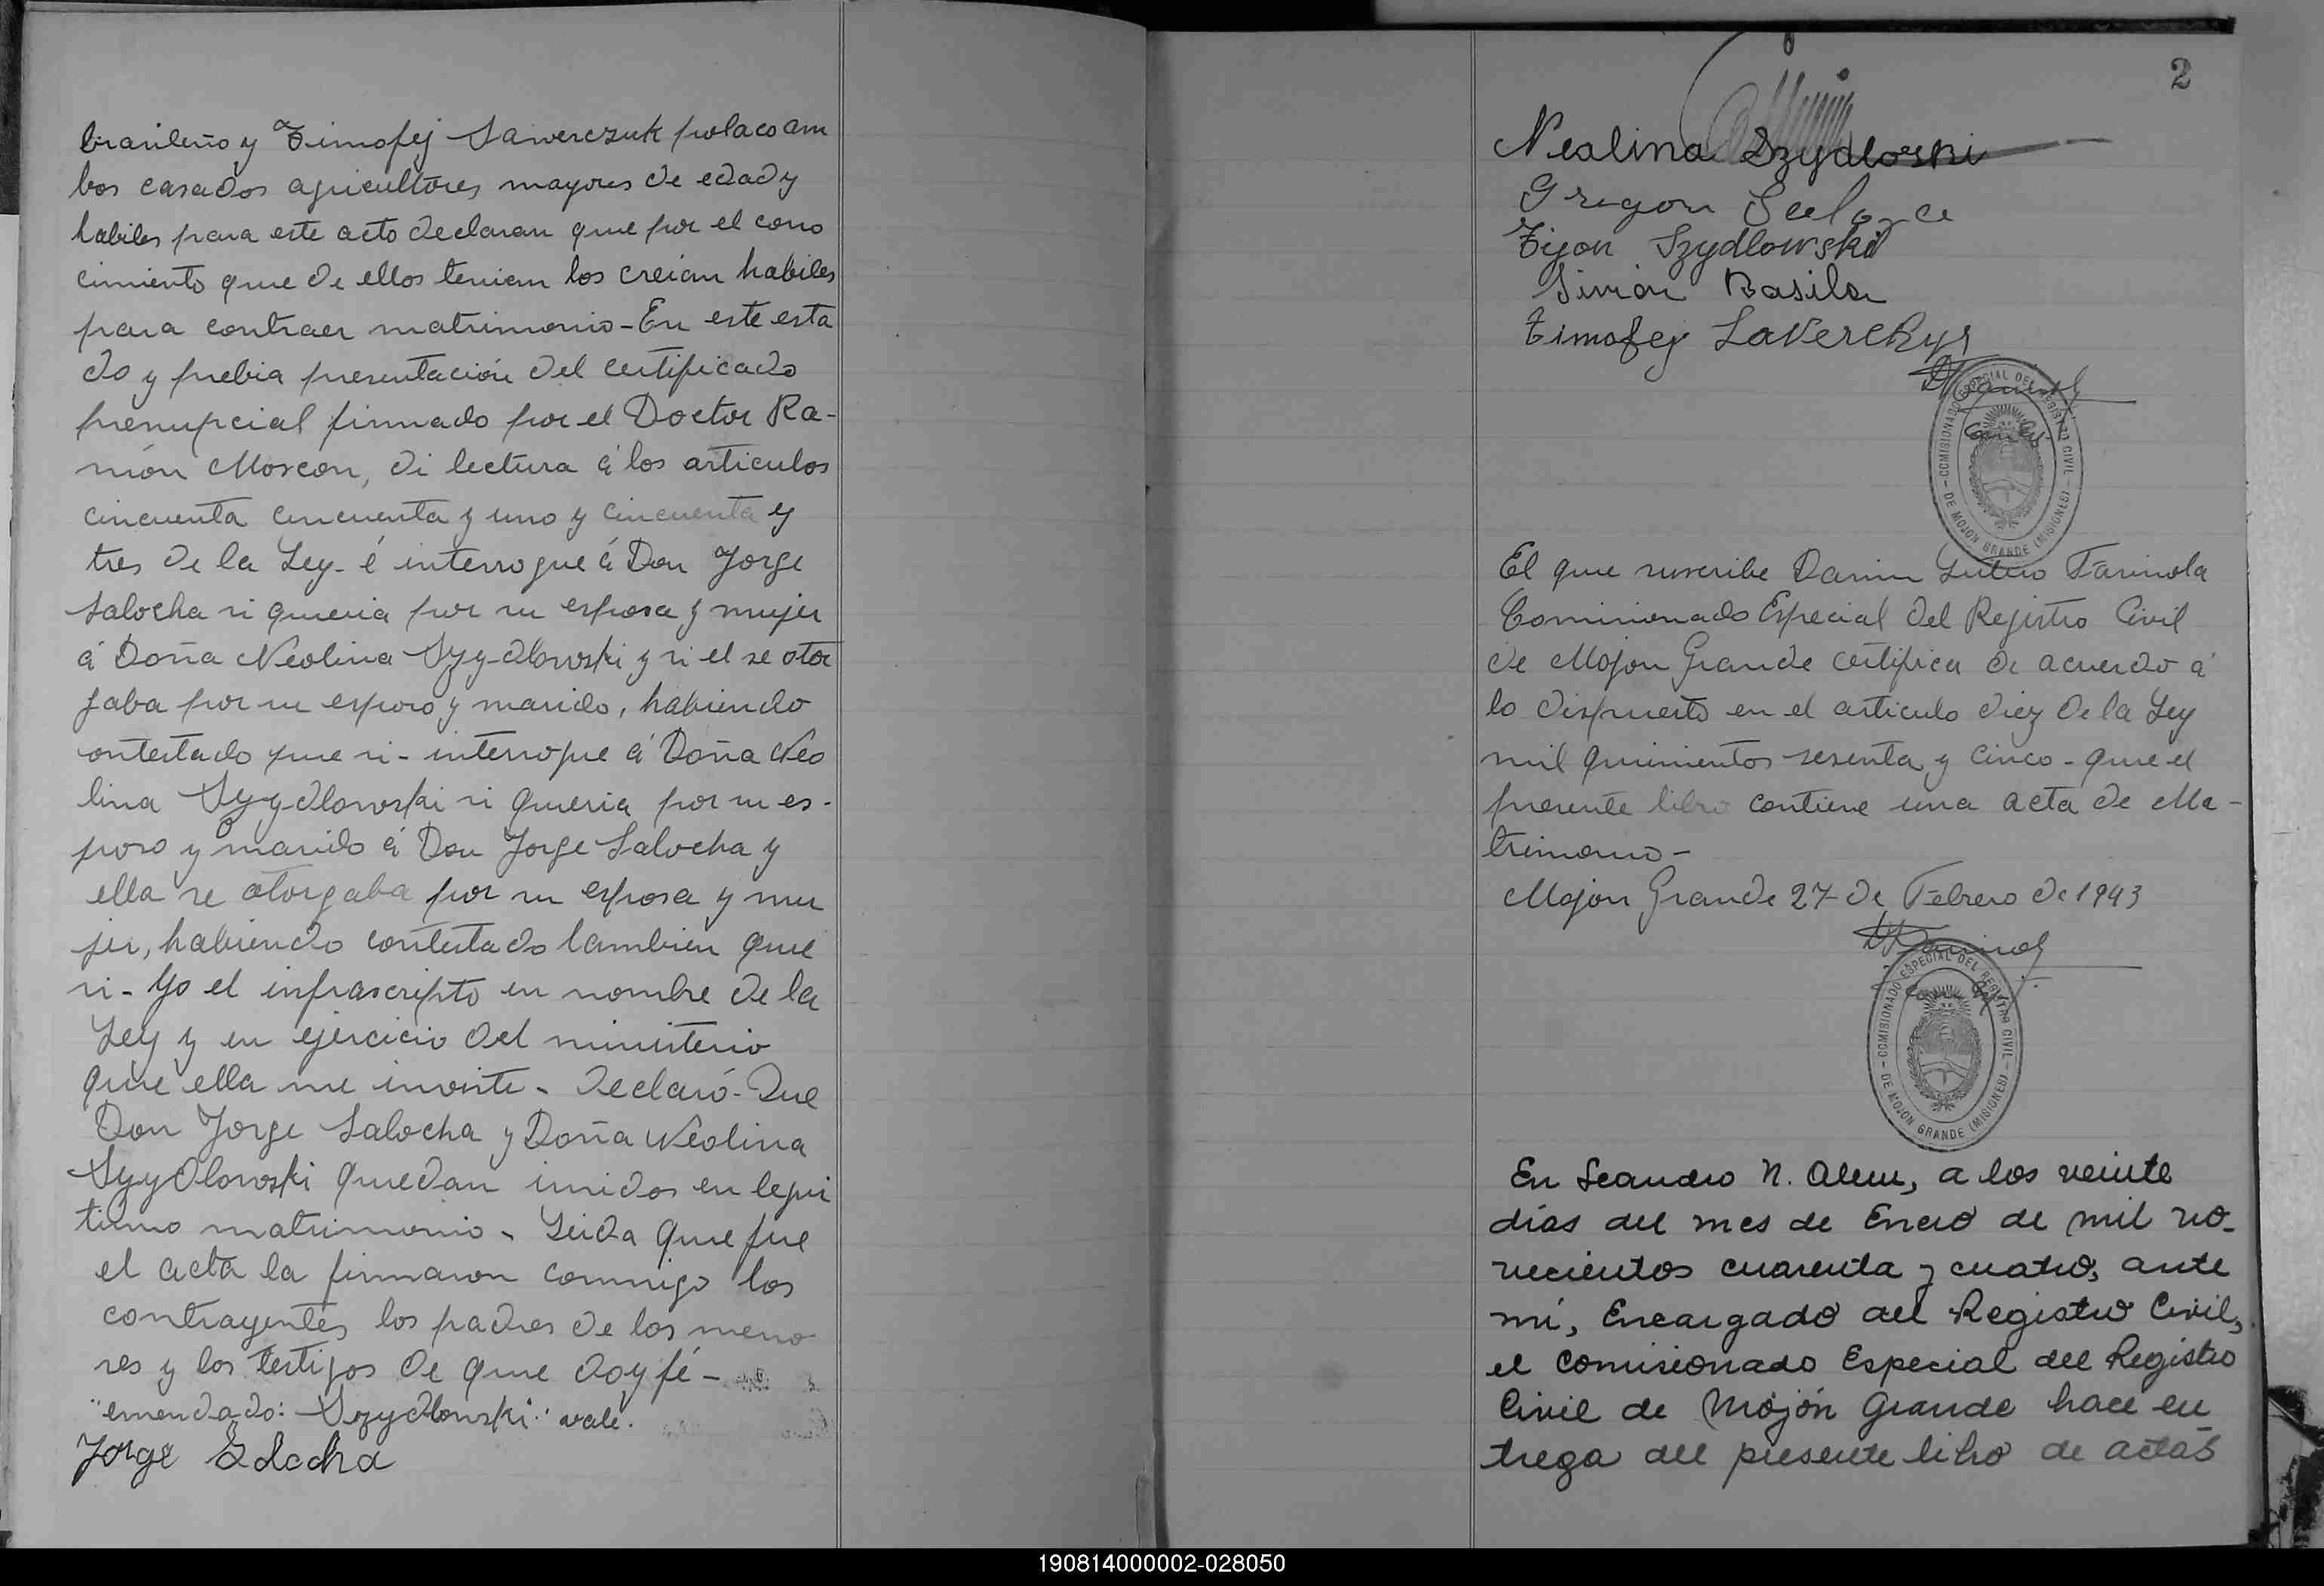 brasileño y Timofej Sawerczuk polaco am
bos casados agricultores mayores de edad y
habiles para este acto declaran que por el cono
cimiento que de ellos tenian los creian habiles
para contraer matrimonio - En este esta
do y prebia presentación del certificado
prenupcial firmado por el Doctor Ra-
món Moscon, di lectura á los articulos
cincuenta cincuenta y uno y cincuenta y
tres de la Ley - é interrogue á Don Jorge
Salocha si queria por su esposa y mujer
á Doña Neolina Szydlowski y si el se otor
gaba por su esposo y marido, habiendo
ontestado que si - interrogue á Doña Neo
lina Szydlowski si queria por su es-
poso y marido á Don Jorge Salocha y
ella se otorgaba por su esposa y mu
jer, habiendo contestado tambien que
si - Yo el infrascripto en nombre de la
Ley y en ejercicio del ministerio
que ella me inviste - declaró - Que
Don Jorge Salocha y Doña Neolina
Szydlowski quedan unidos en legi
timo matrimonio - Leida que fue
el acta la firmaron conmigo los
contrayentes los padres de los meno
res y los testigos de que doy fé -
"emendado: Szydlowski" vale.
Jorge Salocha
2
Nealina Szydloski
Gregori
Tijon Szydlowski
Simón Basila
Timofej
COMISIONADO ESPECIAL DEL REGISTRO CIVIL
- DE MOJON GRANDE (MISIONES) -
El que suscribe Farinola
Comisionado Especial del Registro Civil
de Mojon Grande certifica de acuerdo á
lo dispuesto en el articulo diez de la Ley
mil quinientos sesenta y cinco - que el
presente libro contiene una acta de Ma-
trimonio -
Mojon Grande 27 de Febrero de 1943
COMISIONADO ESPECIAL DEL REGISTRO CIVIL
- DE MOJON GRANDE (MISIONES) -
En Leandro N. Alem, a los veinte
días del mes de Enero de mil no-
vecientos cuarenta y cuatro, ante
mí, Encargado del Registro Civil,
el Comisionado Especial del Registro
Civil de Mojón Grande hace en
trega del presente libro de actas
190814000002-028050